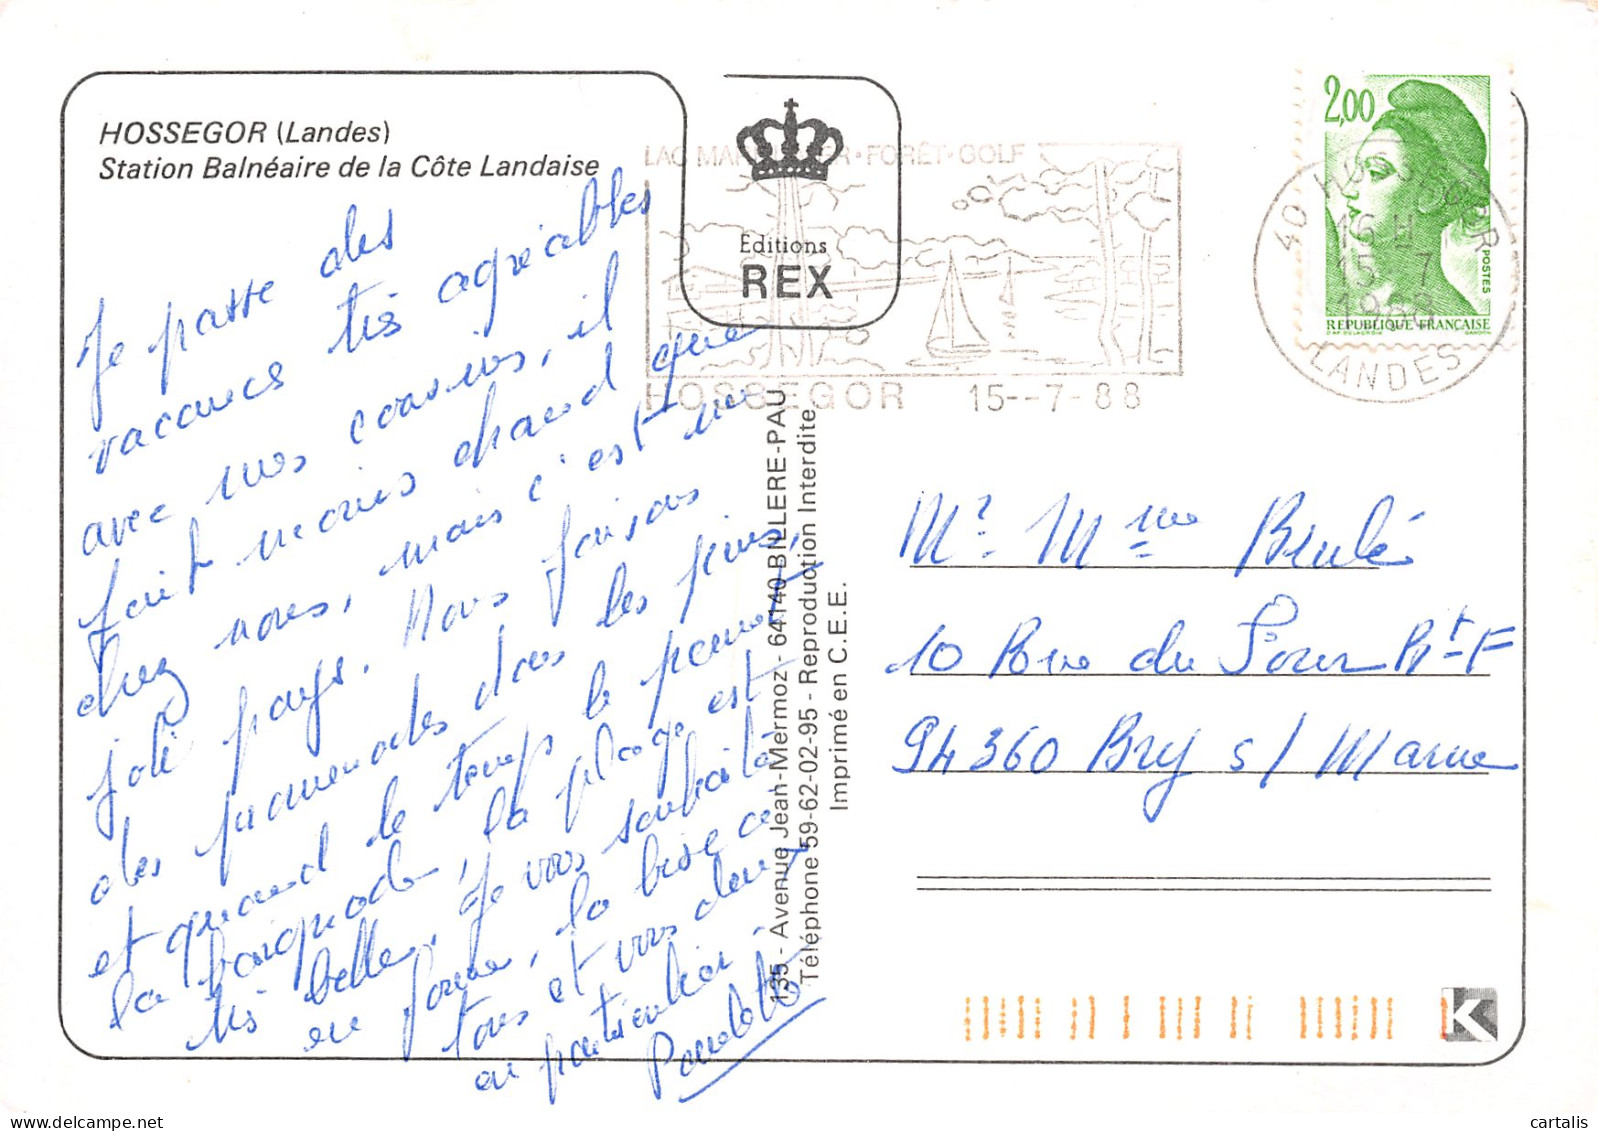 HOSSEGOR (Landes)
Station Balnéaire de la Côte Landaise
Je passe des
vacances très agréables
avec mes cousins, il
fait moins chaud que
chez nous, mais c'est un
joli pays. Nous faisons
des promenades dans les pins,
et quand le temps le permet
la baignade, la plage est
très belle. Je vous souhaite
en forme, la bise à
tous et vous deux
en particulier.
Paulette
Editions
REX
135 - Avenue Jean-Mermoz - 64140 BILLERE-PAU
Téléphone 59-62-02-95 - Reproduction Interdite
Imprimé en C.E.E.
LAC MAR · FORÊT · GOLF
HOSSEGOR 15--7-88
2,00
POSTES
REPUBLIQUE FRANÇAISE
D'AP. DELACROIX GANDON
40 HOSSEGOR
16 H
15 7
1988
LANDES
Mr. Mme Brulé
10 Rue du Four
94360 Bry s/ Marne
K
cartalis